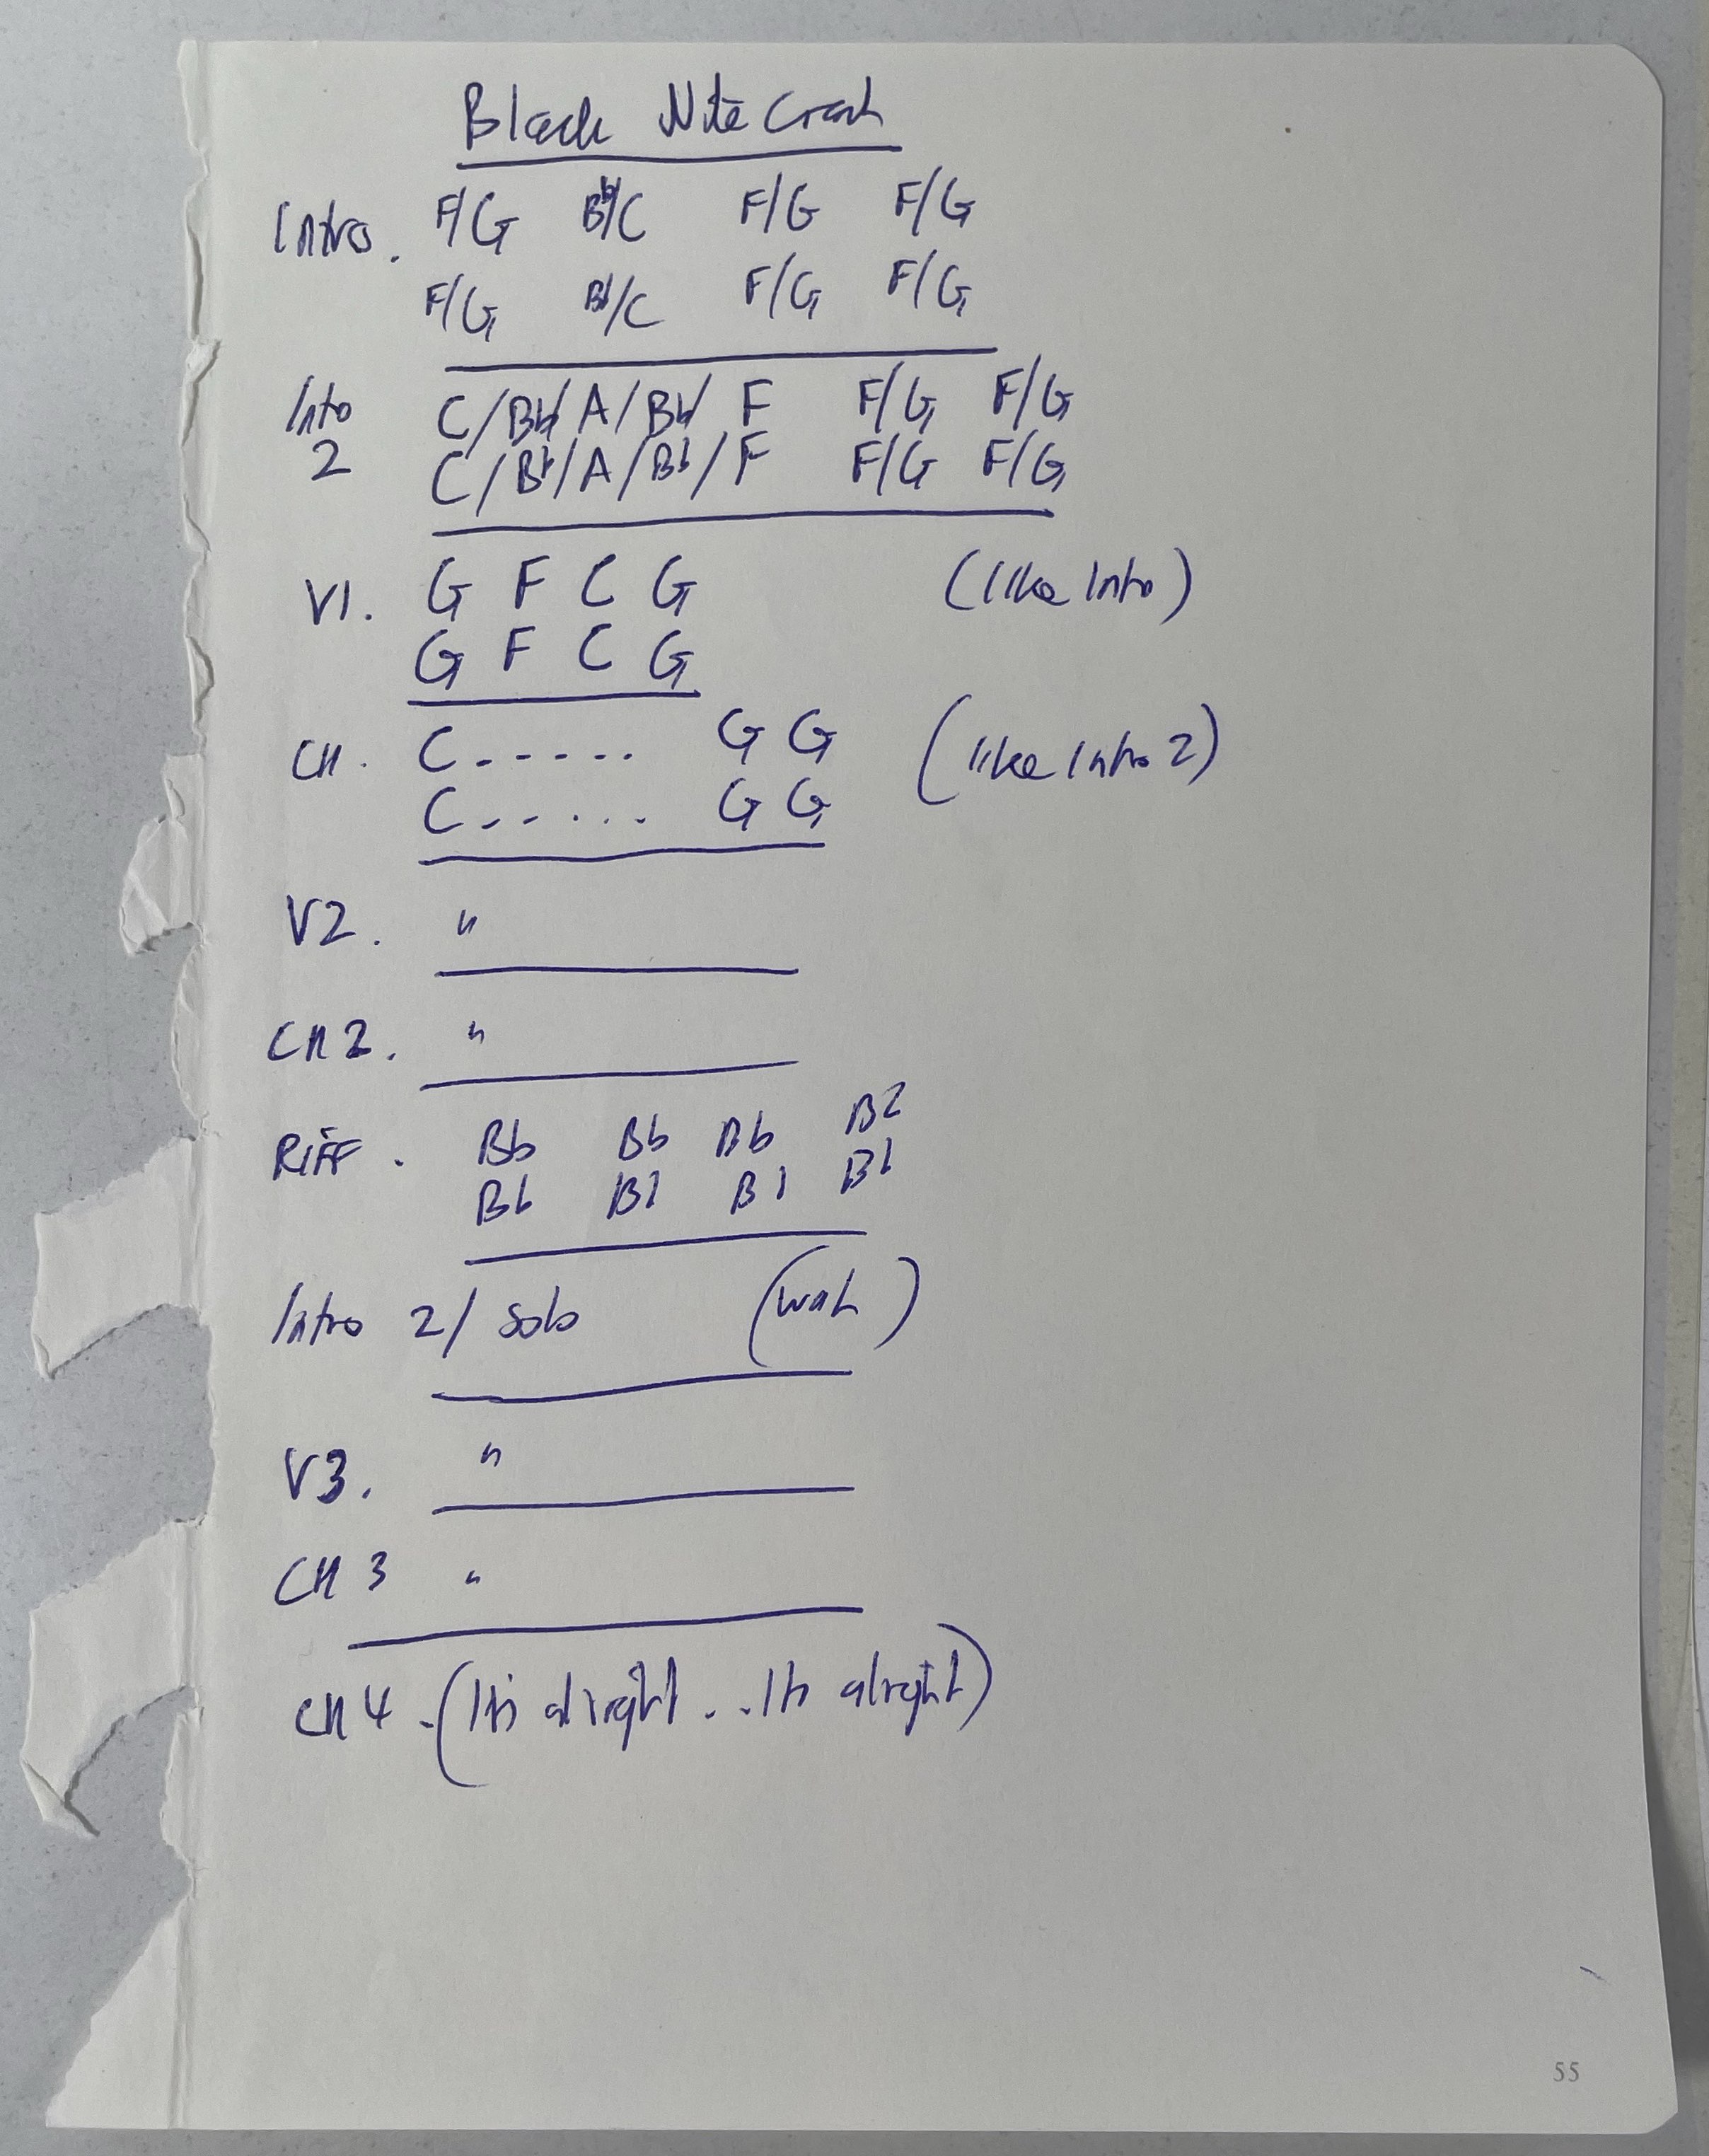 Black Nite Crash
Intro. F/G Bb/C F/G F/G
F/G Bb/C F/G F/G
Intro 2 C/Bb/A/Bb/F F/G F/G
C/Bb/A/Bb/F F/G F/G
V1. G F C G (like Intro)
G F C G
CH. C...... G G (like Intro 2)
C...... G G
V2. "
CH 2. "
RIFF. Bb Bb Bb Bb
Bb Bb Bb Bb
Intro 2/ Solo (wah)
V3. "
CH 3 "
CH 4. (Its alright...Its alright)
55